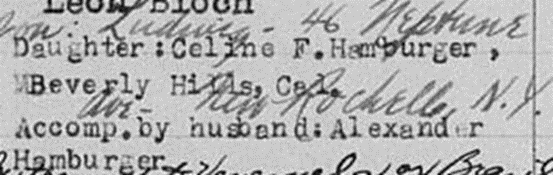 Leon Bloch
son: Ludwig - 46 Neptune
Daughter: Celine F. Hamburger,
Beverly Hills, Cal.
Ave - New Rochelle, N.Y.
Accomp. by husband: Alexander
Hamburger